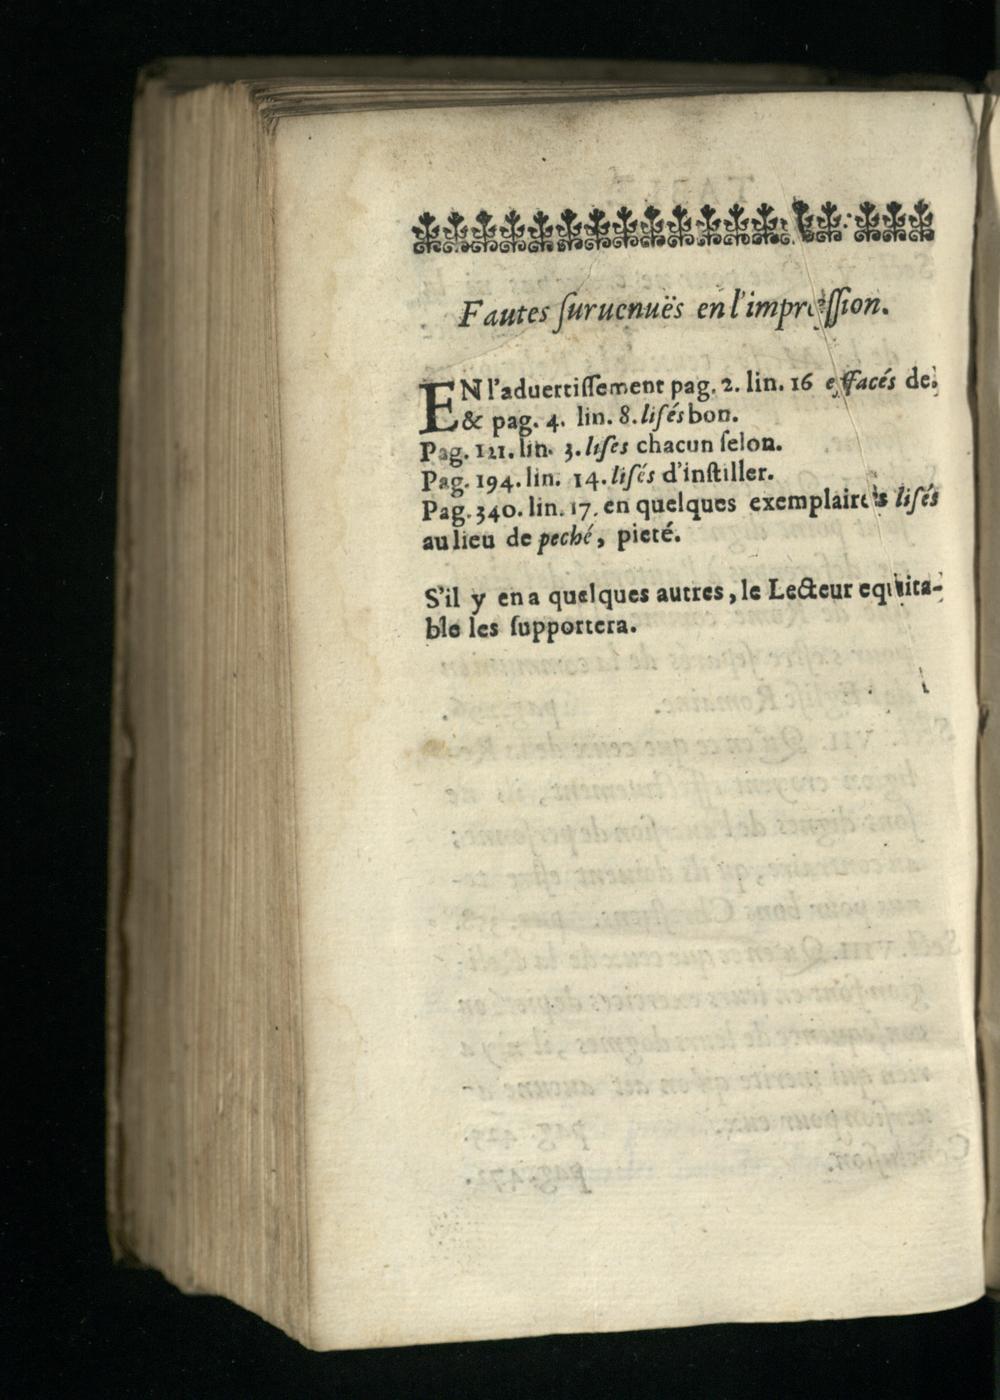 Fautes ſuruenuës en l'impreſſion.
EN l'aduertiſſement pag. 2. lin. 16 effacés de.
& pag. 4. lin. 8. liſés bon.
Pag. 121. lin. 3. liſes chacun ſelon.
Pag. 194. lin. 14. liſés d'inſtiller.
Pag. 340. lin. 17. en quelques exemplaires liſés
au lieu de peché, pieté.
S'il y en a quelques autres, le Lecteur equita-
ble les ſupportera.